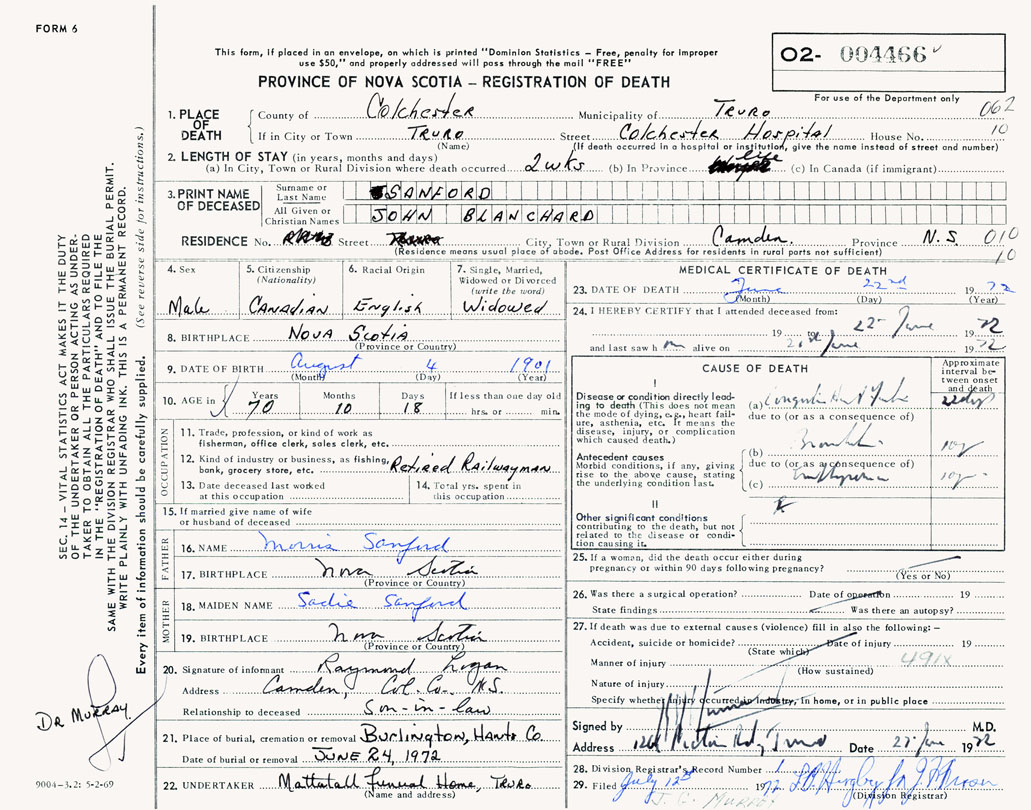 FORM 6
This form, if placed in an envelope, on which is printed "Dominion Statistics – Free, penalty for improper
use $50," and properly addressed will pass through the mail "FREE"
O2- 004466
For use of the Department only
PROVINCE OF NOVA SCOTIA – REGISTRATION OF DEATH
062
10
1. PLACE OF DEATH
County of Colchester Municipality of TRURO
If in City or Town TRURO Street Colchester Hospital House No.
(Name) (If death occurred in a hospital or institution, give the name instead of street and number)
2. LENGTH OF STAY (in years, months and days)
(a) In City, Town or Rural Division where death occurred 2 wks (b) In Province life (c) In Canada (if immigrant)
3. PRINT NAME OF DECEASED
Surname or Last Name SANFORD
All Given or Christian Names JOHN BLANCHARD
RESIDENCE No. Street City, Town or Rural Division Camden. Province N.S. 010
10
(Residence means usual place of abode. Post Office Address for residents in rural parts not sufficient)
4. Sex
Male
5. Citizenship
(Nationality)
CANADIAN
6. Racial Origin
English
7. Single, Married,
Widowed or Divorced
(write the word)
Widowed
8. BIRTHPLACE NOVA SCOTIA
(Province or Country)
9. DATE OF BIRTH August 4 1901
(Month) (Day) (Year)
10. AGE in Years Months Days If less than one day old
70 10 18 hrs. or min.
OCCUPATION
11. Trade, profession, or kind of work as
fisherman, office clerk, sales clerk, etc.
12. Kind of industry or business, as fishing,
bank, grocery store, etc. Retired Railwayman
13. Date deceased last worked
at this occupation
14. Total yrs. spent in
this occupation
15. If married give name of wife
or husband of deceased
FATHER
16. NAME Morris Sanford
17. BIRTHPLACE Nova Scotia
(Province or Country)
MOTHER
18. MAIDEN NAME Sadie Sanford
19. BIRTHPLACE Nova Scotia
(Province or Country)
20. Signature of informant Raymond Logan
Address Camden, Col. Co. N.S.
Relationship to deceased Son-in-law
21. Place of burial, cremation or removal Burlington, Hants Co.
Date of burial or removal JUNE 24, 1972
22. UNDERTAKER Mattatall Funeral Home, TRURO
(Name and address)
MEDICAL CERTIFICATE OF DEATH
23. DATE OF DEATH June 22nd 1972
(Month) (Day) (Year)
24. I HEREBY CERTIFY that I attended deceased from:
19 to 22 June 1972
and last saw h m alive on June 1972
CAUSE OF DEATH
Approximate
interval be-
tween onset
and death
I
Disease or condition directly lead-
ing to death (This does not mean
the mode of dying, e.g., heart fail-
ure, asthenia, etc. It means the
disease, injury, or complication
which caused death.)
(a)
due to (or as a consequence of)
Antecedent causes
Morbid conditions, if any, giving
rise to the above cause, stating
the underlying condition last.
(b)
due to (or as a consequence of)
(c)
II
Other significant conditions
contributing to the death, but not
related to the disease or condi-
tion causing it.
25. If a woman, did the death occur either during
pregnancy or within 90 days following pregnancy?
(Yes or No)
26. Was there a surgical operation? Date of operation 19
State findings Was there an autopsy?
27. If death was due to external causes (violence) fill in also the following: –
Accident, suicide or homicide? Date of injury 19
(State which)
Manner of injury 491X
(How sustained)
Nature of injury
Specify whether injury occurred in industry, in home, or in public place
Signed by M.D.
Address Truro Date 27 June 1972
28. Division Registrar's Record Number
29. Filed July 12th 1972
(Division Registrar)
SEC. 14 – VITAL STATISTICS ACT MAKES IT THE DUTY
OF THE UNDERTAKER OR PERSON ACTING AS UNDER-
TAKER TO OBTAIN ALL THE PARTICULARS REQUIRED
IN THE "REGISTRATION OF DEATH" AND TO FILE THE
SAME WITH THE DIVISION REGISTRAR WHO SHALL ISSUE THE BURIAL PERMIT.
WRITE PLAINLY WITH UNFADING INK. THIS IS A PERMANENT RECORD.
Every item of information should be carefully supplied. (See reverse side for instructions.)
DR MURRAY
9004-3.2: 5-2-69